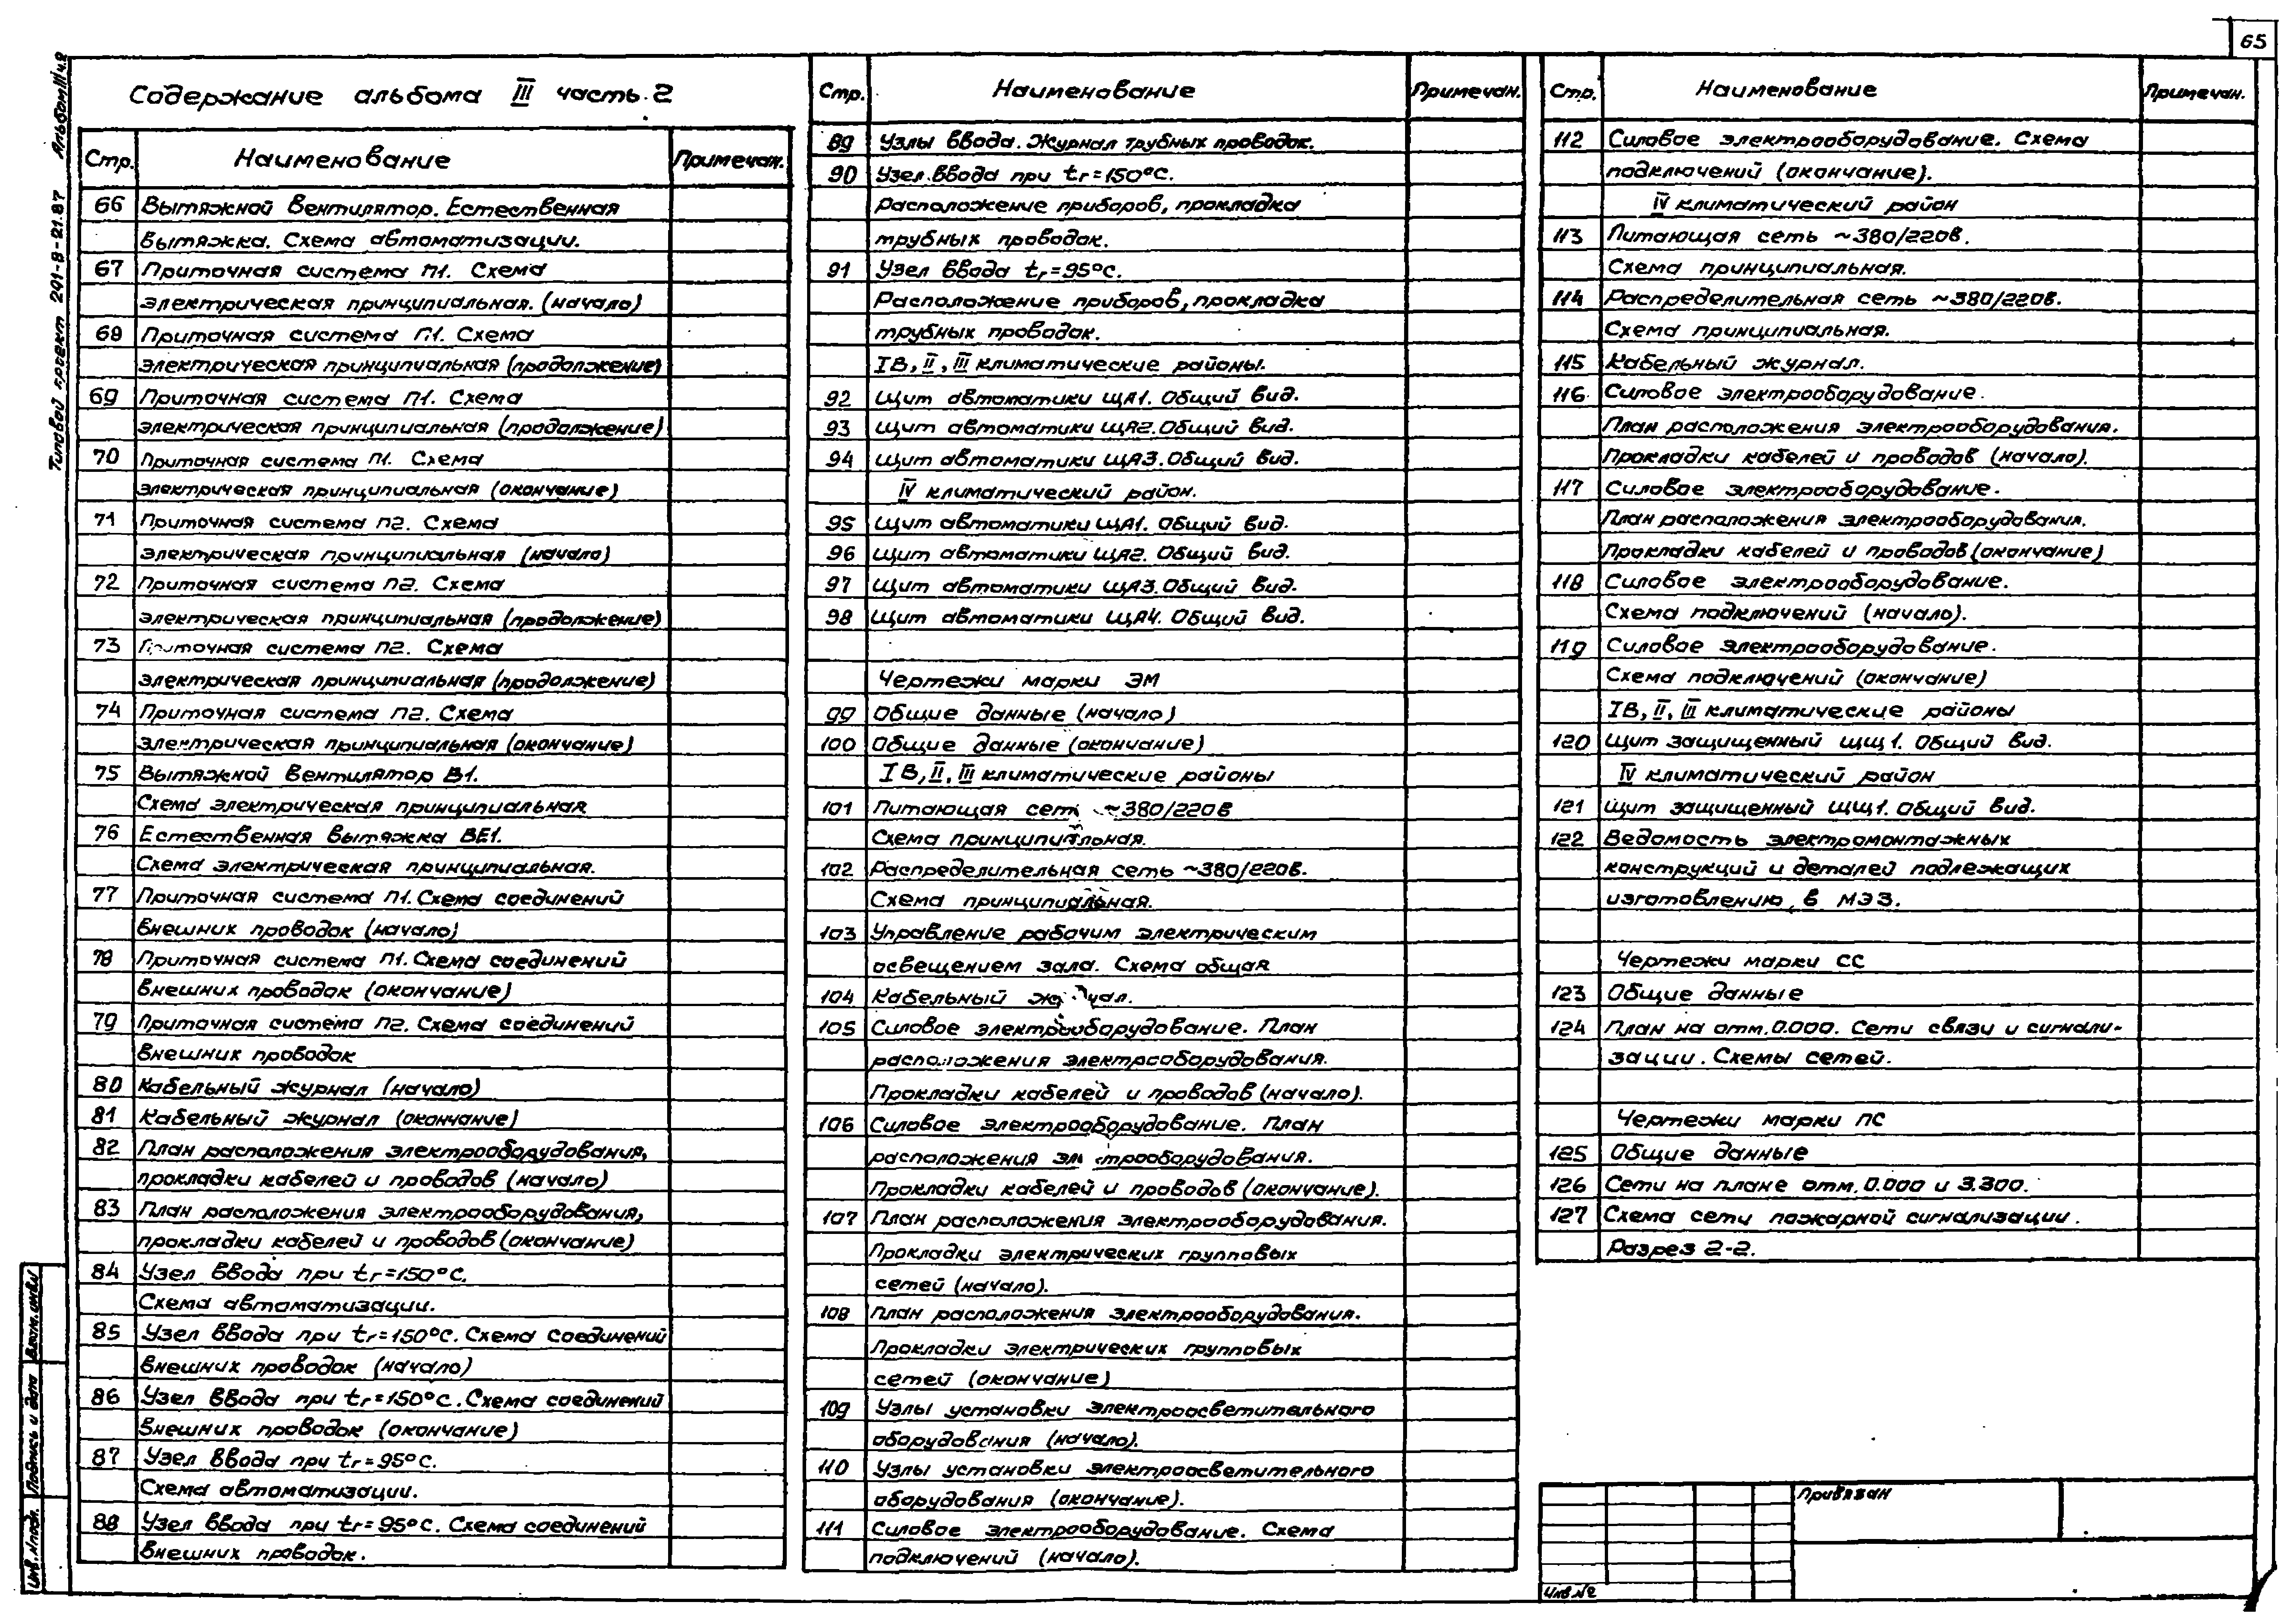 65
Типовой проект 291-8-21.87 Альбом III ч.2
Содержание альбома III часть 2
Стр. Наименование Примечан.
66 Вытяжной вентилятор. Естественная
вытяжка. Схема автоматизации.
67 Приточная система П1. Схема
электрическая принципиальная. (начало)
68 Приточная система П1. Схема
электрическая принципиальная (продолжение)
69 Приточная система П1. Схема
электрическая принципиальная (продолжение)
70 Приточная система П1. Схема
электрическая принципиальная (окончание)
71 Приточная система П2. Схема
электрическая принципиальная (начало)
72 Приточная система П2. Схема
электрическая принципиальная (продолжение)
73 Приточная система П2. Схема
электрическая принципиальная (продолжение)
74 Приточная система П2. Схема
электрическая принципиальная (окончание)
75 Вытяжной вентилятор В1.
Схема электрическая принципиальная
76 Естественная вытяжка ВЕ1.
Схема электрическая принципиальная.
77 Приточная система П1. Схема соединений
внешних проводок (начало)
78 Приточная система П1. Схема соединений
внешних проводок (окончание)
79 Приточная система П2. Схема соединений
внешних проводок
80 Кабельный журнал (начало)
81 Кабельный журнал (окончание)
82 План расположения электрооборудования,
прокладки кабелей и проводов (начало)
83 План расположения электрооборудования,
прокладки кабелей и проводов (окончание)
84 Узел ввода при tг=150°С.
Схема автоматизации.
85 Узел ввода при tг=150°С. Схема соединений
внешних проводок (начало)
86 Узел ввода при tг=150°С. Схема соединений
внешних проводок (окончание)
87 Узел ввода при tг=95°С.
Схема автоматизации.
88 Узел ввода при tг=95°С. Схема соединений
внешних проводок.
Стр. Наименование Примечан.
89 Узлы ввода. Журнал трубных проводок.
90 Узел ввода при tг=150°С.
Расположение приборов, прокладка
трубных проводок.
91 Узел ввода tг=95°С.
Расположение приборов, прокладка
трубных проводок.
IВ, II, III климатические районы.
92 Щит автоматики ЩА1. Общий вид.
93 Щит автоматики ЩА2. Общий вид.
94 Щит автоматики ЩА3. Общий вид.
IV климатический район.
95 Щит автоматики ЩА1. Общий вид.
96 Щит автоматики ЩА2. Общий вид.
97 Щит автоматики ЩА3. Общий вид.
98 Щит автоматики ЩА4. Общий вид.
Чертежи марки ЭМ
99 Общие данные (начало)
100 Общие данные (окончание)
IВ, II, III климатические районы
101 Питающая сеть ~380/220в
Схема принципиальная.
102 Распределительная сеть ~380/220в.
Схема принципиальная.
103 Управление рабочим электрическим
освещением зала. Схема общая
104 Кабельный журнал.
105 Силовое электрооборудование. План
расположения электрооборудования.
Прокладки кабелей и проводов (начало).
106 Силовое электрооборудование. План
расположения электрооборудования.
Прокладки кабелей и проводов (окончание).
107 План расположения электрооборудования.
Прокладки электрических групповых
сетей (начало).
108 План расположения электрооборудования.
Прокладки электрических групповых
сетей (окончание)
109 Узлы установки электроосветительного
оборудования (начало).
110 Узлы установки электроосветительного
оборудования (окончание).
111 Силовое электрооборудование. Схема
подключений (начало).
Стр. Наименование Примечан.
112 Силовое электрооборудование. Схема
подключений (окончание).
IV климатический район
113 Питающая сеть ~380/220в.
Схема принципиальная.
114 Распределительная сеть ~380/220в.
Схема принципиальная.
115 Кабельный журнал.
116 Силовое электрооборудование.
План расположения электрооборудования.
Прокладки кабелей и проводов (начало).
117 Силовое электрооборудование.
План расположения электрооборудования.
Прокладки кабелей и проводов (окончание)
118 Силовое электрооборудование.
Схема подключений (начало).
119 Силовое электрооборудование.
Схема подключений (окончание)
IВ, II, III климатические районы
120 Щит защищенный ЩЩ1. Общий вид.
IV климатический район
121 Щит защищенный ЩЩ1. Общий вид.
122 Ведомость электромонтажных
конструкций и деталей подлежащих
изготовлению в МЭЗ.
Чертежи марки СС
123 Общие данные
124 План на отм. 0.000. Сети связи и сигнали-
зации. Схемы сетей.
Чертежи марки ПС
125 Общие данные
126 Сети на плане отм. 0.000 и 3.300.
127 Схема сети пожарной сигнализации.
Разрез 2-2.
Привязан
Инв.№
Инв.№подл. Подпись и дата Взам.инв№